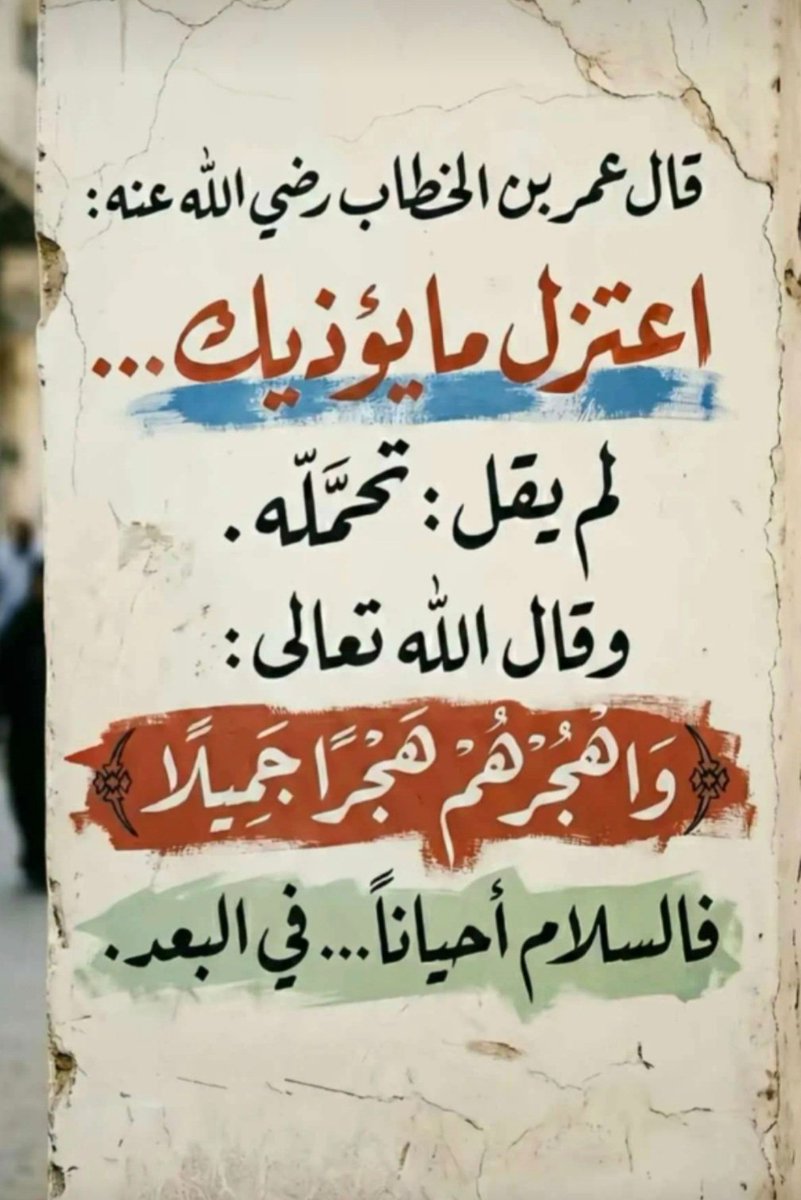 قال عمر بن الخطاب رضي الله عنه:
اعتزل ما يؤذيك...
لم يقل: تحمَّلّه.
وقال الله تعالى:
﴿وَاهْجُرْهُمْ هَجْرًا جَمِيلًا﴾
فالسلام أحياناً... في البعد.